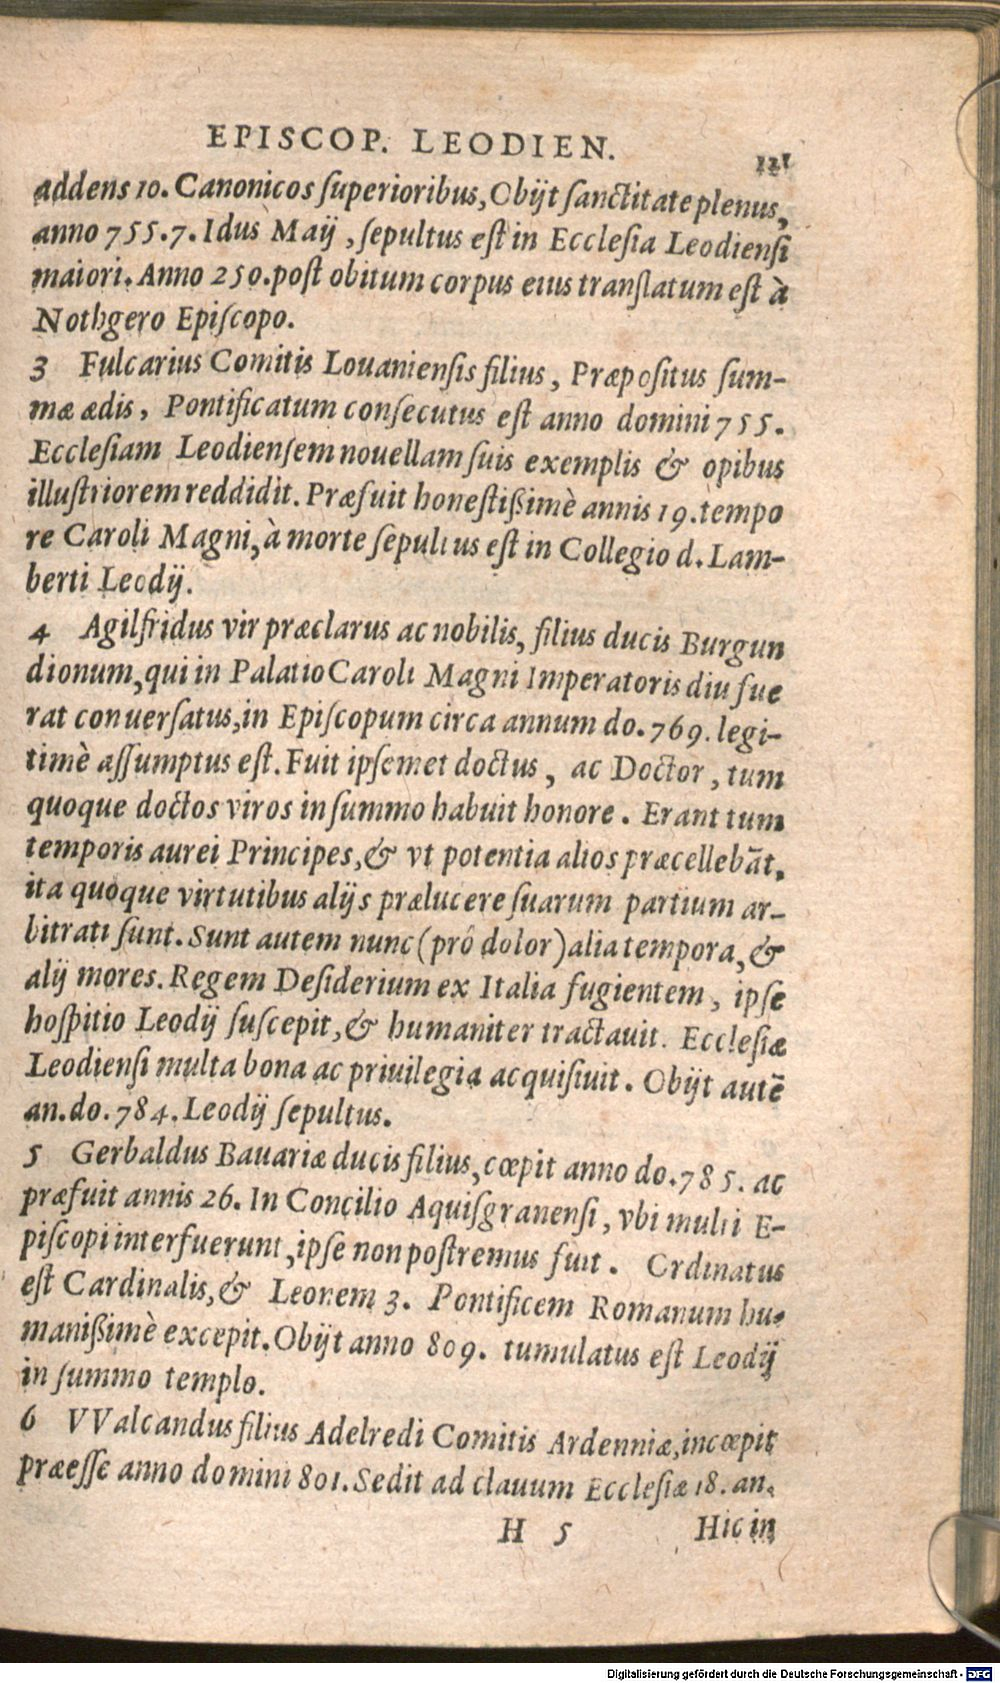 EPISCOP. LEODIEN. 121
addens 10. Canonicos ſuperioribus, Obijt ſanctitate plenus,
anno 755. 7. Idus Maij, ſepultus eſt in Eccleſia Leodienſi
maiori. Anno 250. poſt obitum corpus eius tranſlatum eſt à
Nothgero Epiſcopo.
3 Fulcarius Comitis Louanienſis filius, Præpoſitus ſum-
mæ ædis, Pontificatum conſecutus eſt anno domini 755.
Eccleſiam Leodienſem nouellam ſuis exemplis & opibus
illuſtriorem reddidit. Præfuit honeſtißimè annis 19. tempo
re Caroli Magni, à morte ſepultus eſt in Collegio d. Lam-
berti Leodij.
4 Agilfridus vir præclarus ac nobilis, filius ducis Burgun
dionum, qui in Palatio Caroli Magni Imperatoris diu fue
rat conuerſatus, in Epiſcopum circa annum do. 769. legi-
timè aſſumptus eſt. Fuit ipſemet doctus, ac Doctor, tum
quoque doctos viros in ſummo habuit honore. Erant tum
temporis aurei Principes, & vt potentia alios præcellebãt,
ita quoque virtutibus alijs prælucere ſuarum partium ar-
bitrati ſunt. Sunt autem nunc (prô dolor) alia tempora, &
alij mores. Regem Deſiderium ex Italia fugientem, ipſe
hoſpitio Leodij ſuſcepit, & humaniter tractauit. Eccleſiæ
Leodienſi multa bona ac priuilegia acquiſiuit. Obijt autẽ
an. do. 784. Leodij ſepultus.
5 Gerbaldus Bauariæ ducis filius, cœpit anno do. 785. ac
præfuit annis 26. In Concilio Aquiſgranenſi, vbi multi E-
piſcopi interfuerunt, ipſe non poſtremus fuit. Ordinatus
eſt Cardinalis, & Leonem 3. Pontificem Romanum hu-
manißimè excepit. Obijt anno 809. tumulatus eſt Leodij
in ſummo templo.
6 VValcandus filius Adelredi Comitis Ardenniæ, incœpit
præeſſe anno domini 801. Sedit ad clauum Eccleſiæ 18. an.
H 5 Hic in
Digitalisierung gefördert durch die Deutsche Forschungsgemeinschaft - DFG